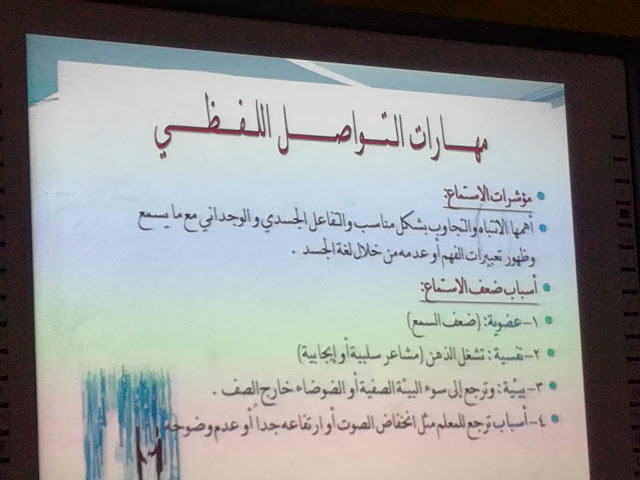 مهارات التواصل اللفظي
• مؤشرات الاستماع:
• أهمها الانتباه والتجاوب بشكل مناسب والتفاعل الجسدي والوجداني مع ما يسمع
وظهور تعبيرات الفهم أو عدمه من خلال لغة الجسد .
• أسباب ضعف الاستماع:
• ١- عضوية: (ضعف السمع)
• ٢- نفسية : تشغل الذهن (مشاعر سلبية أو إيجابية)
• ٣- بيئية : وترجع إلى سوء البيئة الصفية أو الضوضاء خارج الصف .
• ٤- أسباب ترجع للمعلم مثل انخفاض الصوت أو ارتفاعه جداً أو عدم وضوحه